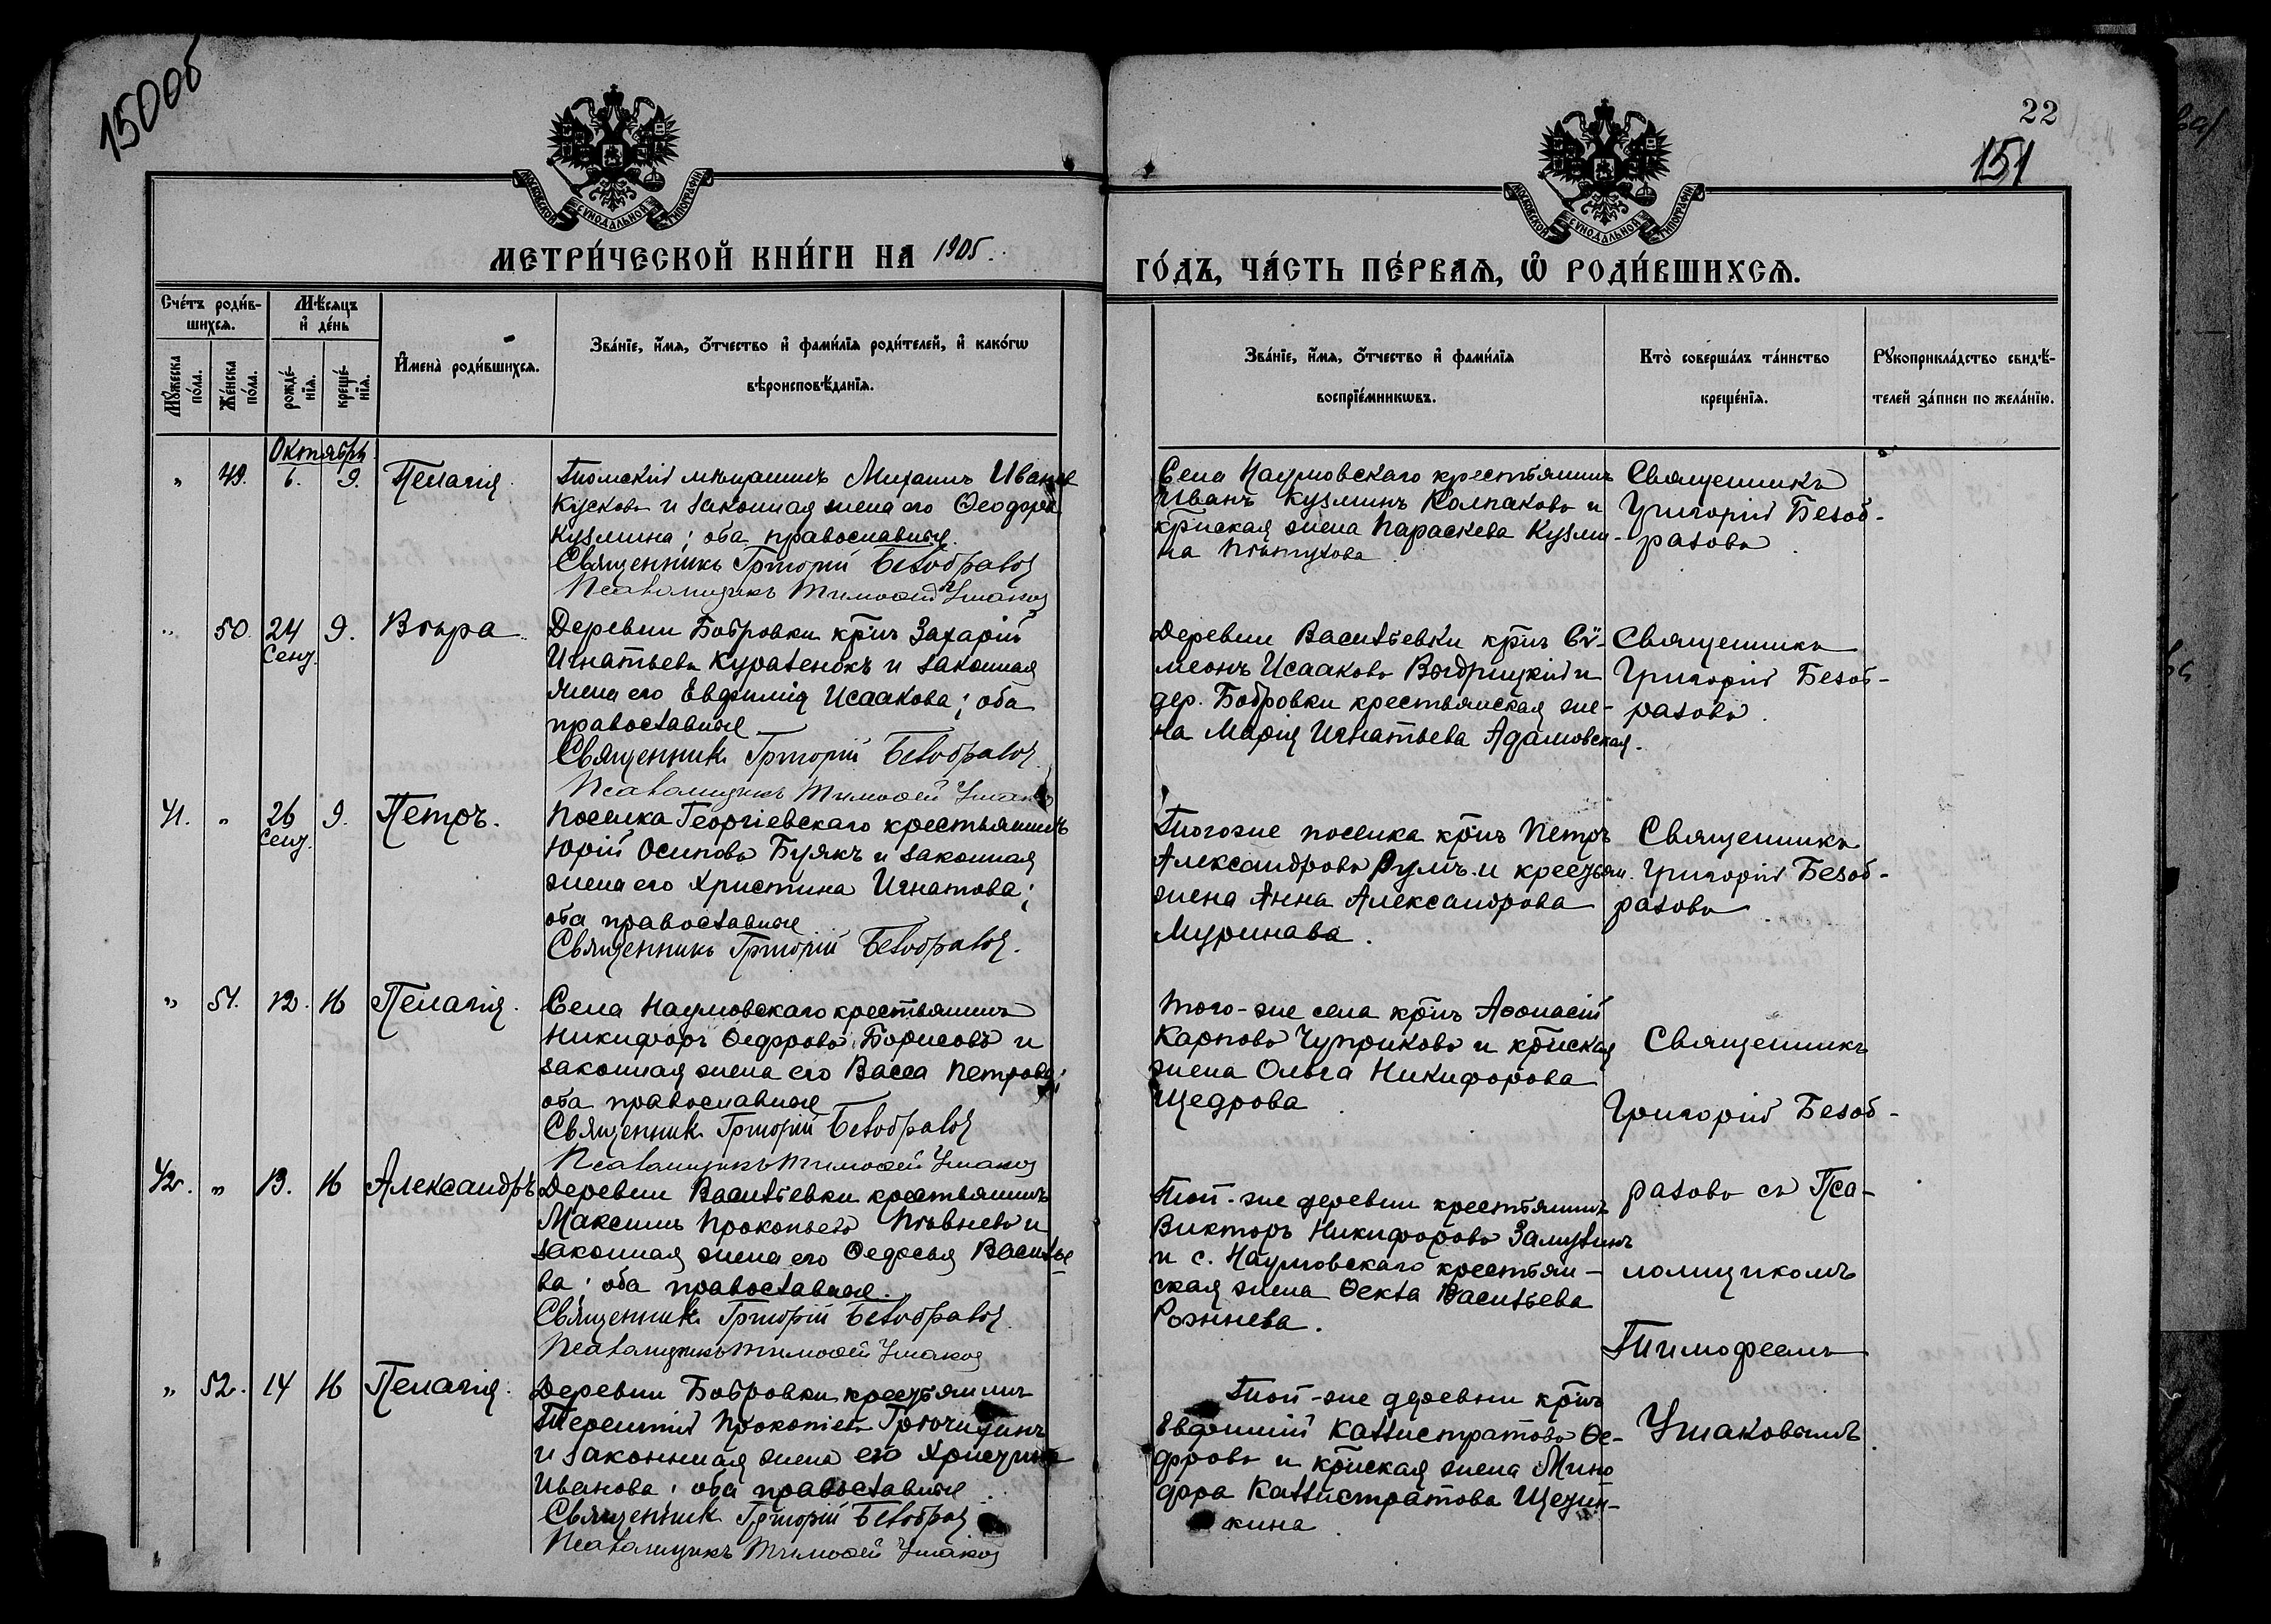 150об
22
151
МОСКОВСКОЙ СѴНОДАЛЬНОЙ ТИПОГРАФІИ
МОСКОВСКОЙ СѴНОДАЛЬНОЙ ТИПОГРАФІИ
МЕТРИ́ЧЕСКОЙ КНИ́ГИ НА 1905.
ГО́ДЪ, ЧА́СТЬ ПЕ́РВАѦ, Ѽ РОДИ́ВШИХСѦ.
Сче́тъ роди́в-
шихсѧ.
Мꙋ́жеска по́ла.
Же́нска по́ла.
Мѣ́сяцъ и҆ де́нь
рожде́-
нїѧ.
креще́-
нїѧ.
И҆мена̀ роди́вшихсѧ.
Зва́нїе, и҆́мѧ, о҆́тчество и҆ фами́лїѧ роди́телей, и҆ како́гѡ
вѣроисповѣ́данїѧ.
Зва́нїе, и҆́мѧ, о҆́тчество и҆ фами́лїѧ
воспрїе́мникѡвъ.
Кто̀ соверша́лъ та́инство
креще́нїѧ.
Рꙋкоприкла́дство свидѣ́-
телей за́писи по жела́нїю.
Октябрь
" 49. 6. 9. Пелагія.
Томскій мѣщанинъ Михаилъ Иванов
Кусковъ и законная жена его Ѳеодора
Кузмина; оба православные.
Священникъ Григорій Безобразов
Псаломщикъ Тимофей Ушаков
Села Наумовскаго крестьянинъ
Иванъ Кузминъ Колпаковъ и
кр̃нская жена Параскева Кузми-
на Пѣтухова.
Священникъ
Григорій Безоб-
разовъ.
" 50. 24 Сент. 9. Вѣра
Деревни Бобровки кр̃нъ Захарій
Игнатьевъ Куразенокъ и законная
жена его Евфимія Исаакова; оба
православные
Священникъ Григорій Безобразов
Псаломщикъ Тимофей Ушаков
Деревни Васильевки кр̃нъ Сѵ-
меонъ Исааковъ Выдрицкій и
дер. Бобровки крестьянская же-
на Марія Игнатьева Адамовская.
Священникъ
Григорій Безоб-
разовъ.
41. " 26 Сент. 9. Петръ.
Поселка Георгіевскаго крестьянинъ
Юрій Осиповъ Буякъ и законная
жена его Христина Игнатова;
оба православные
Священникъ Григорій Безобразов.
Тогоже поселка кр̃нъ Петръ
Александровъ Румъ и крестьян.
жена Анна Александрова
Муринава.
Священникъ
Григорій Безоб-
разовъ
" 51. 12. 16 Пелагія.
Села Наумовскаго крестьянинъ
Никифоръ Ѳедоровъ Борисовъ и
законная жена его Васса Петрова;
оба православные
Священникъ Григорій Безобразов
Псаломщикъ Тимофей Ушаков
Того-же села кр̃нъ Аѳонасій
Карповъ Чуприковъ и кр̃нская
жена Ольга Никифорова
Щедрова
Священникъ
Григорій Безоб-
42. " 13. 16 Александръ
Деревни Васильевки крестьянинъ
Максимъ Прокопьевъ Пѣвневъ и
законная жена его Ѳедосья Василье
ва; оба православные.
Священникъ Григорій Безобразов
Псаломщикъ Тимофей Ушаков
Той-же деревни крестьянинъ
Викторъ Никифоровъ Зализинъ
и с. Наумовскаго крестьян-
ская жена Ѳекла Васильева
Рожнева.
разовъ съ Пса-
ломщикомъ
Тимофеемъ
" 52. 14 16 Пелагія.
Деревни Бобровки крестьянинъ
Терентій Прокопіевъ
и законная жена его Христина
Иванова; оба православные
Священникъ Григорій Безобраз
Псаломщикъ Тимофей Ушаков
Той-же деревни кр̃нъ
Евфимій Каллистратовъ Ѳе-
доровъ и кр̃нская жена Мино
дора Каллистратова Щетин-
кина
Ушаковымъ